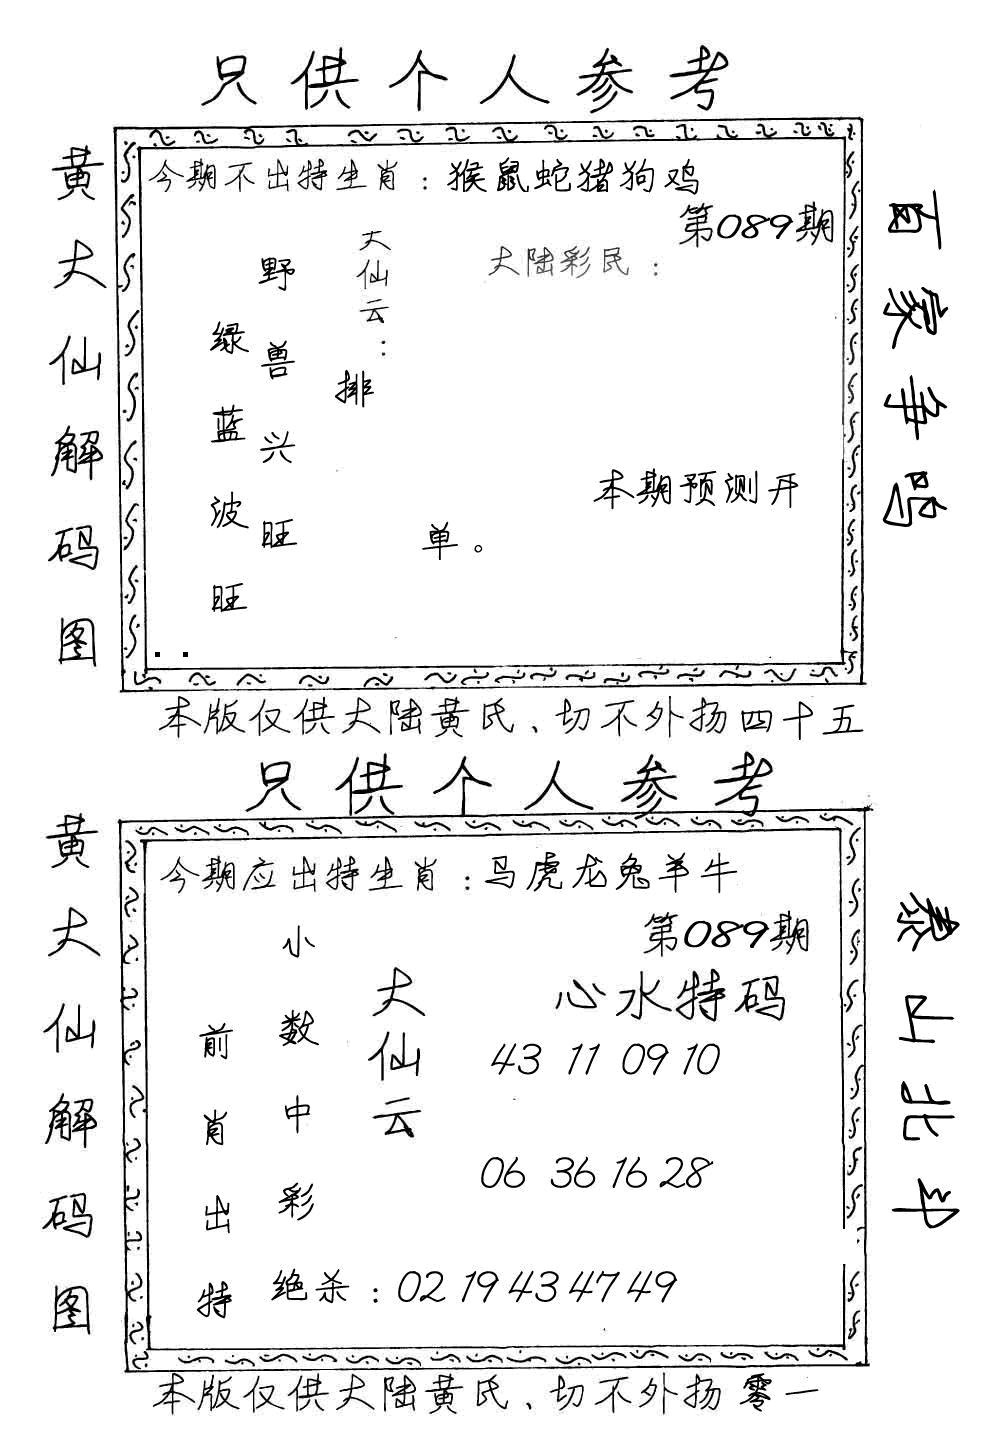 只供个人参考
黄大仙解码图
今期不出特生肖：猴鼠蛇猪狗鸡
第089期
大陆彩民：
大仙云：
野兽兴旺
绿蓝波旺
排
本期预测开
单。
百家争鸣
本版仅供大陆黄氏、切不外扬四十五
只供个人参考
黄大仙解码图
今期应出特生肖：马虎龙兔羊牛
第089期
心水特码
43 11 09 10
06 36 16 28
大仙云
小数中彩
前肖出特
绝杀：02 19 43 47 49
泰山北斗
本版仅供大陆黄氏、切不外扬零一